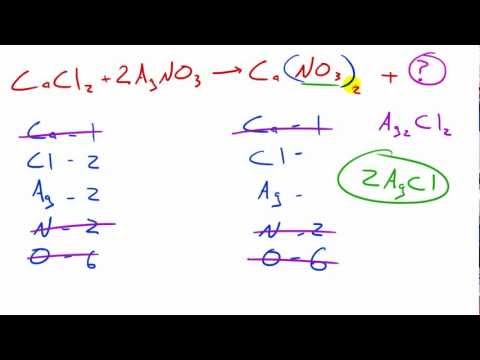 CaCl₂ + 2AgNO₃ → Ca(NO₃)₂ + ?
Ca - 1
Cl - 2
Ag - 2
N - 2
O - 6
Ca - 1
Cl -
Ag -
N - 2
O - 6
Ag₂Cl₂
2AgCl